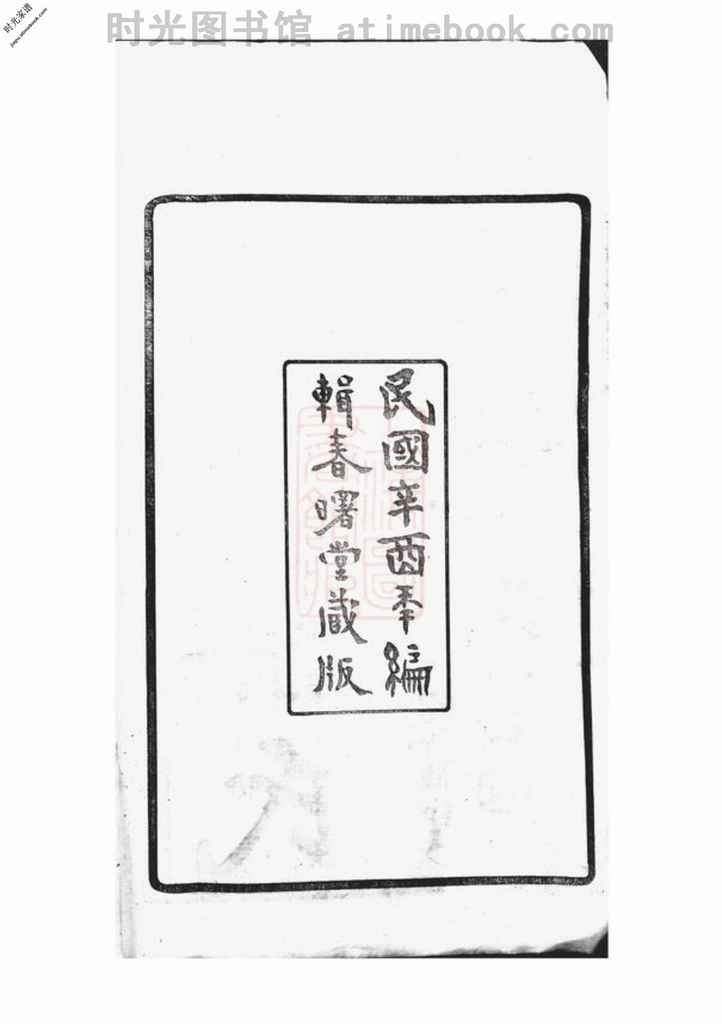 时光图书馆 atimebook.com
时光家谱
jiapu.atimebook.com
民國辛酉年編
輯春曙堂藏版